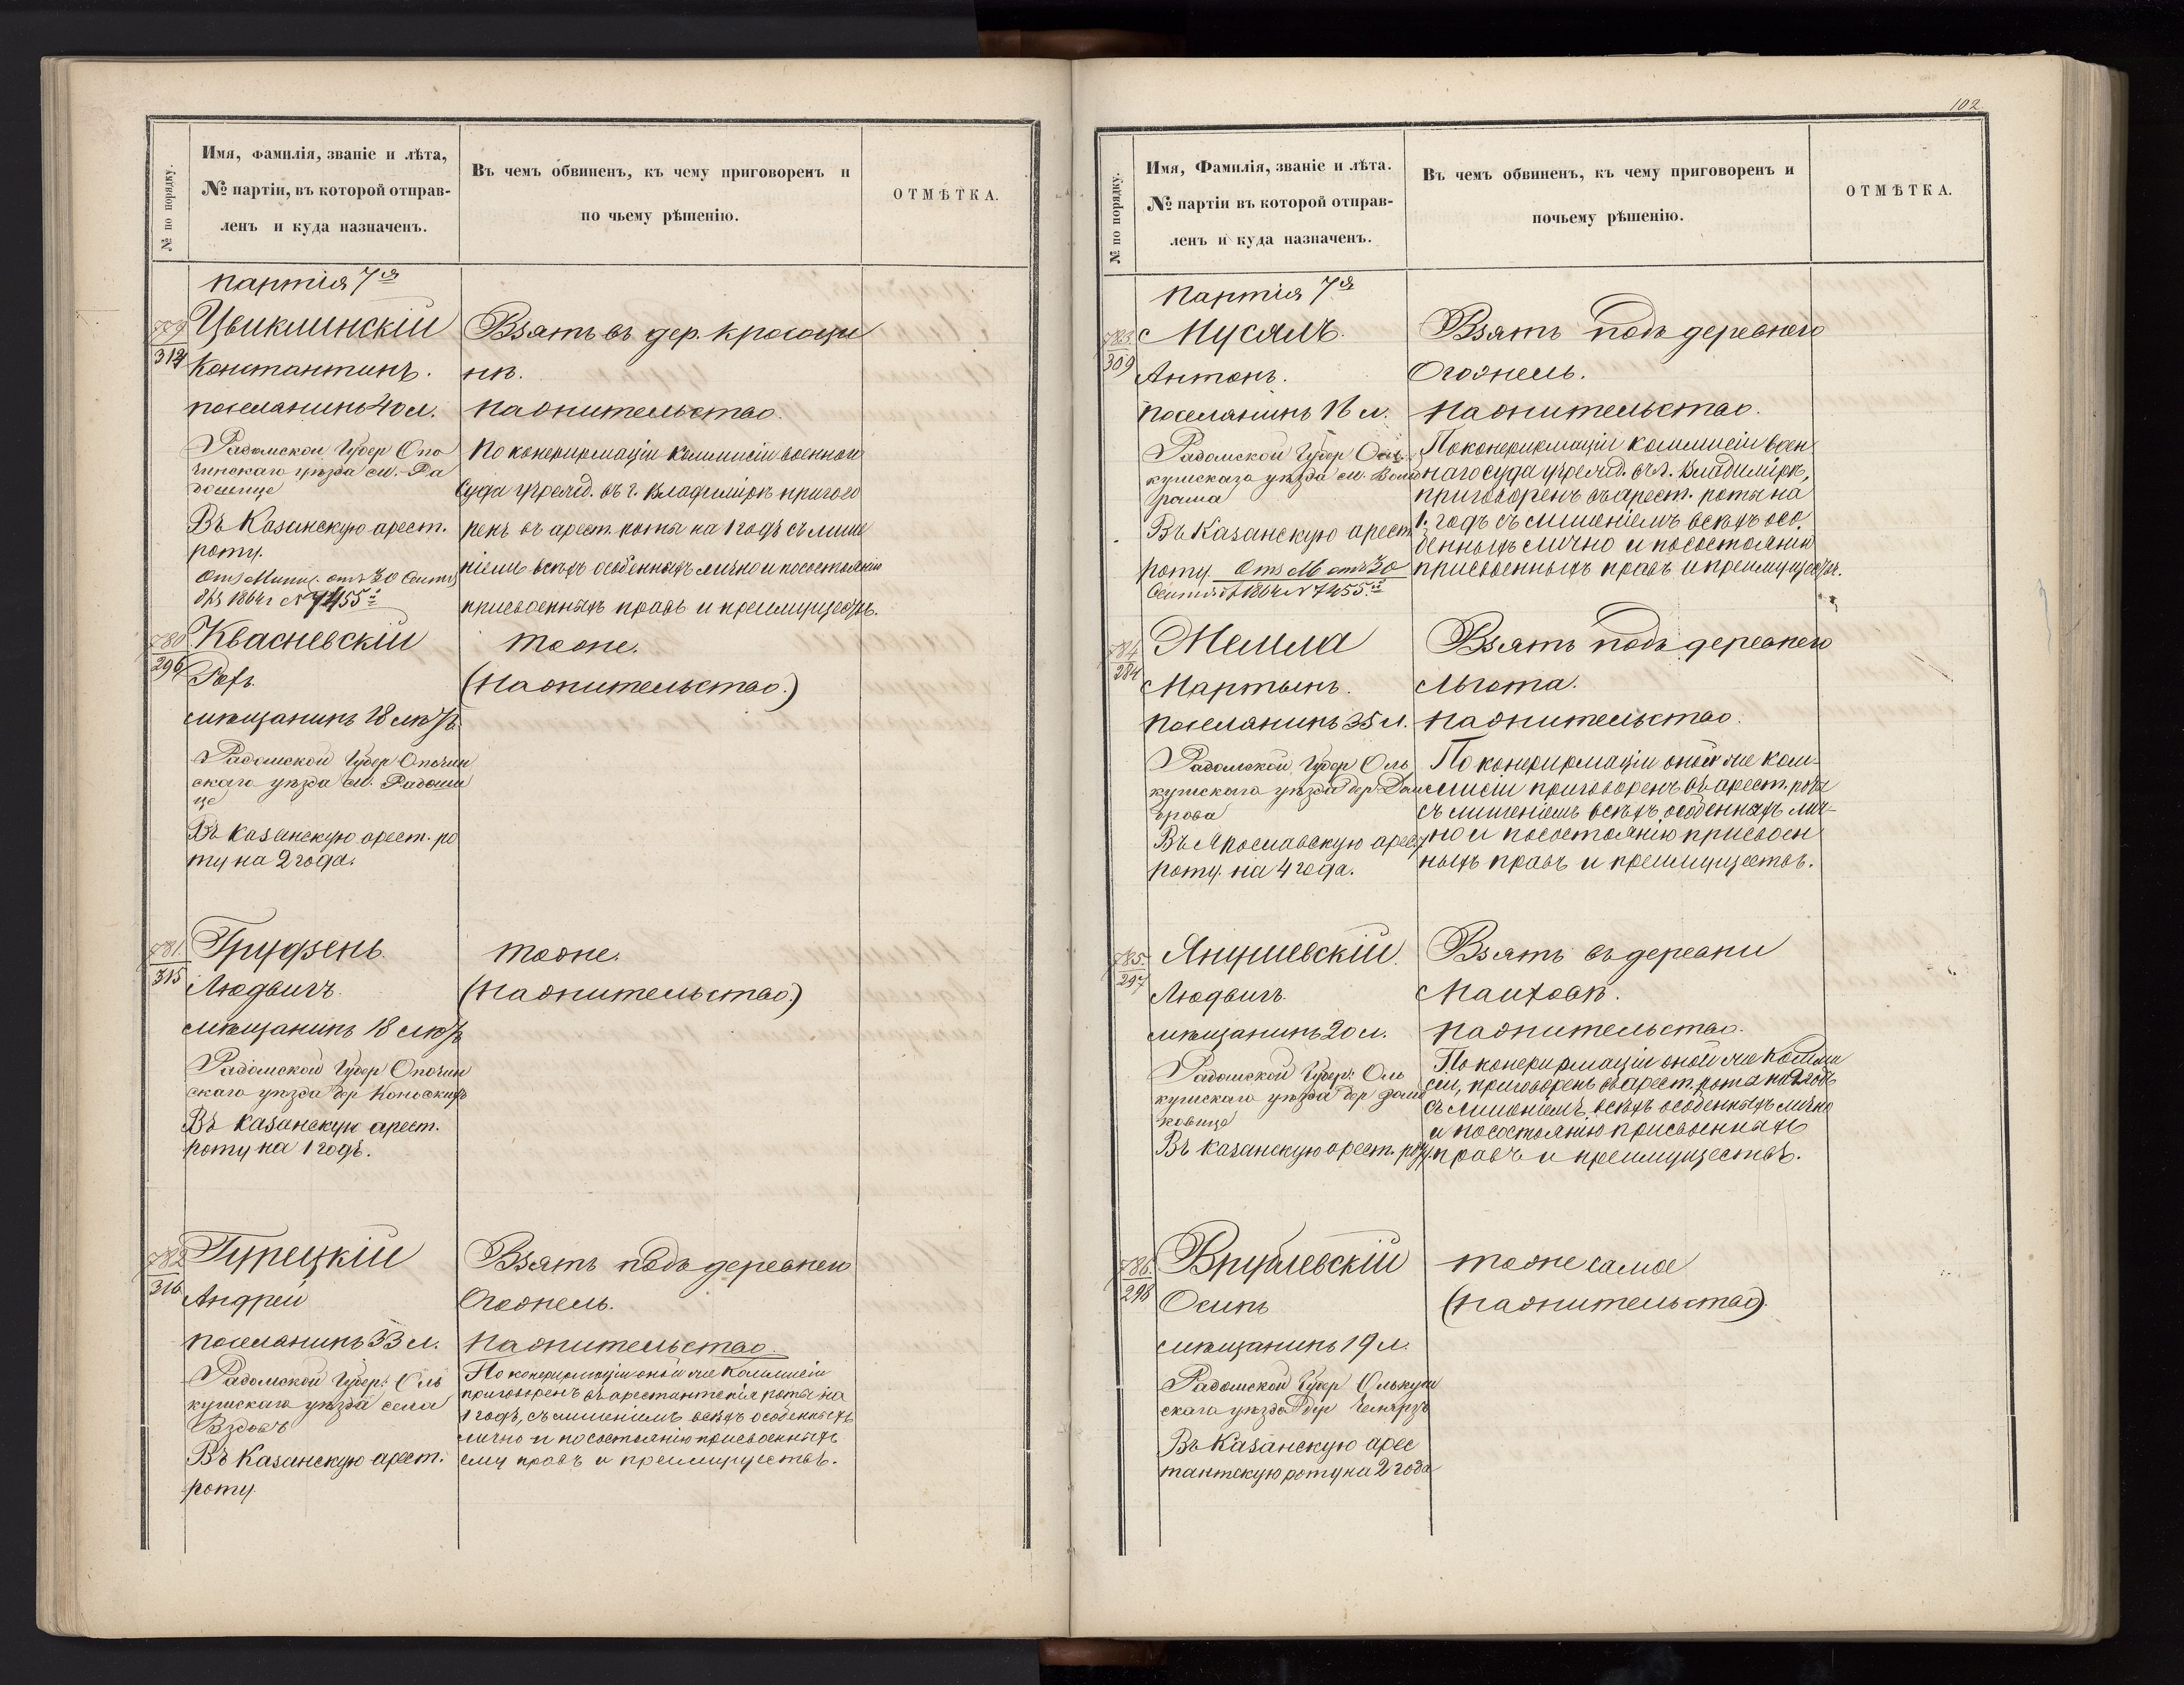 № по порядку.
Имя, фамилія, званіе и лѣта,
№ партіи, въ которой отправ-
ленъ и куда назначенъ.
Въ чемъ обвиненъ, къ чему приговоренъ и
по чьему рѣшенію.
ОТМѢТКА.
партія 7я
779
314
Цвиклинскій
Константинъ.
поселанинъ 40 л.
Радомской Губер Опо
чинскаго уѣзда м. Ра
дошице
Въ Казанскую арест.
роту.
30 Сентя
1864 г № 7455
Взятъ въ дер.
нѣ.
По конфирмаціи Коммисіи военнаго
суда учрежд. въ г. Владимірѣ пригово
ренъ въ арест. роты на 1 годъ съ лише
ніемъ всѣхъ особенныхъ лично и по состоянію
присвоенныхъ правъ и преимуществъ.
780
296
Квасневскій
мѣщанинъ 18 лѣтъ
Радомской Губер Опочин
скаго уѣзда м. Радоши
це
Въ казанскую арест. ро
ту на 2 года.
тоже.
781.
315
Грудзень.
Людвигъ.
мѣщанинъ 18 лѣтъ
Радомской Губер Опочин
скаго уѣзда дер
Въ казанскую арест.
роту на 1 годъ.
тоже.
782
316
Гурецкій
Андрей
поселанинъ 33 л.
Радомской Губер. Оль
кушскаго уѣзда села
Въ Казанскую арест.
роту.
Взятъ подъ деревнею
По конфирмаціи оной же Коммисіи
приговоренъ въ арестантскія роты на
1 годъ, съ лишеніемъ всѣхъ особенныхъ
лично и по состоянію присвоенныхъ
ему правъ и преимуществъ.
102.
№ по порядку.
Имя, Фамилія, званіе и лѣта.
№ партіи въ которой отправ-
ленъ и куда назначенъ.
Въ чемъ обвиненъ, къ чему приговоренъ и
почьему рѣшенію.
ОТМѢТКА.
партія 7я
783.
309
Мусялъ.
Антонъ.
поселянинъ 16 л.
Радомской Губер Оль
кушскаго уѣзда
Въ Казанскую арест
роту. Отъ М отъ 30
Сентяб 1864 № 7455
Взятъ подъ деревнею
По конфирмаціи коммисіи воен
наго суда учрежд. въ г. Владимірѣ,
приговоренъ въ арест. роты на
1. годъ съ лишеніемъ всѣхъ осо
бенныхъ лично и по состоянію
присвоенныхъ правъ и преимуществъ.
784
284
Мартынъ.
поселянинъ 35 л.
Радомской Губер Оль
кушскаго уѣзда дер. Дом
брова
Въ Ярославскую арест
роту. на 4 года.
Взятъ подъ деревнею
Льгота.
По конфирмаціи оной же ком-
мисіи приговоренъ въ арест. роты
съ лишеніемъ всѣхъ особенныхъ лич-
но и по состоянію присвоен
ныхъ правъ и преимуществъ.
785.
297
Янушевскій.
Людвигъ.
мѣщанинъ 20 л.
Радомской Губер. Оль
кушскаго уѣзда дер
Въ казанскую арест. роту.
Взятъ въ деревни
По конфирмаціи оной же Комми
сіи, приговоренъ въ арест. роты на 2 года
съ лишеніемъ всѣхъ особенныхъ лично
и по состоянію присвоенныхъ
правъ и преимуществъ.
786.
298
Врублевскій
Осипъ
мѣщанинъ 19 л.
Радомской Губер Олькуш
скаго уѣзда дер
Въ Казанскую арес
тантскую роту на 2 года
тоже самое